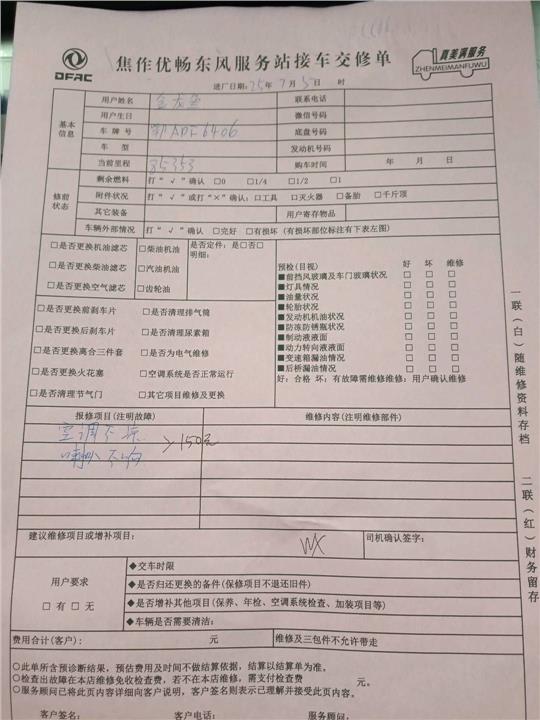 DFAC
焦作优畅东风服务站接车交修单
真美满服务
ZHENMEIMANFUWU
进厂日期:25年7月5日 时
基本信息
用户姓名 联系电话
用户生日 微信号码
车牌号 鄂ADF6406 底盘号码
车型 发动机号码
当前里程 85353 购车时间 年 月 日
修前状态
剩余燃料 打“√”确认 □0 □1/4 □1/2 □1
附件状况 打“√”或打“×”确认: □工具 □灭火器 □备胎 □千斤顶
其它装备 用户寄存物品
车辆外部情况 打“√”确认 □完好 □有损坏(有损坏部位标注有下表左图)
□是否更换机油滤芯 □柴油机油 是否定件: 是□否□
明细:
□是否更换柴油滤芯 □汽油机油
□是否更换空气滤芯 □齿轮油
□是否更换前刹车片 □是否清理排气筒
□是否更换后刹车片 □是否清理尿素箱
□是否更换离合三件套 □是否为电气维修
□是否更换火花塞 □空调系统是否正常运行
□是否清理节气门 □其它项目维修及更换
预检(目视) 好 坏 维修
■前挡风玻璃及车门玻璃状况 □ □ □
■灯具情况 □ □ □
■油量状况 □ □ □
■轮胎状况 □ □ □
■发动机机油状况 □ □ □
■防冻防锈瓶状况 □ □ □
■制动液液面 □ □ □
■动力转向液液面 □ □ □
■变速箱漏油情况 □ □ □
■后桥漏油情况 □ □ □
好:合格 坏:有故障需维修维修:用户确认维修
报修项目(注明故障) 维修内容(注明维修部件)
空调不凉
喇叭不响
>150元
建议维修项目或增补项目: 司机确认签字:
用户要求
□有 □无
◆交车时限
◆是否归还更换的备件(保修项目不退还旧件)
◆是否增补其他项目(保养、年检、空调系统检查、加装项目等)
◆车辆是否需要清洁:
费用合计(客户): 元 维修及三包件不允许带走
○此单所含预诊断结果,预估费用及时间不做结算依据,结算以结算单为准。
○检查出故障在本店维修免收检查费,若不在本店维修,需支付检查费 元。
○服务顾问已将此页内容详细向客户说明,客户签名则表示已理解并接受此页内容。
客户签名: 客户电话: 服务顾问:
一联(白)随维修资料存档
二联(红)财务留存